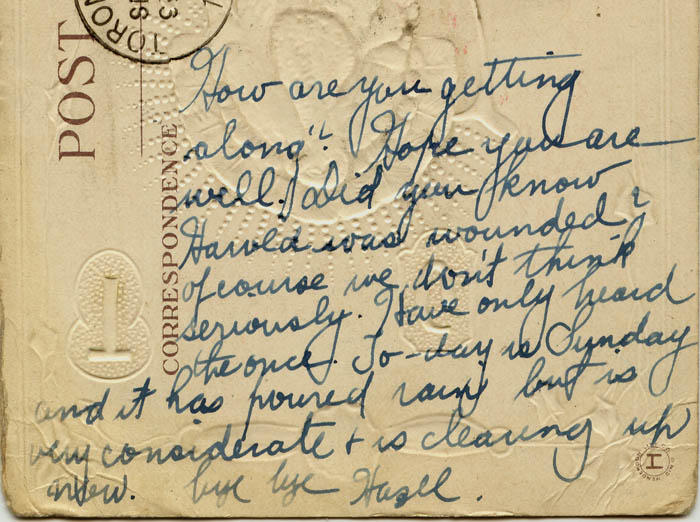 TORON
POST
CORRESPONDENCE
How are you getting
along? Hope you are
well. Did you know
Harold was wounded?
of course we don't think
seriously. Have only heard
the once. To-day is Sunday
and it has poured rain but is
very considerate + is clearing up
now. bye bye Hazel.
1
H